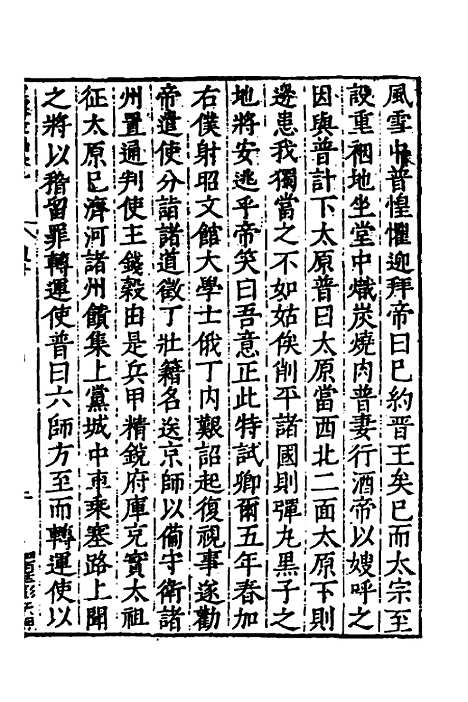 風雪中普惶懼迎拜帝曰已約晉王矣已而太宗至
設重裀地坐堂中熾炭燒肉普妻行酒帝以嫂呼之
因與普計下太原普曰太原當西北二面太原下則
邊患我獨當之不如姑俟削平諸國則彈丸黑子之
地將安逃乎帝笑曰吾意正此特試卿爾五年春加
右僕射昭文館大學士俄丁內艱詔起復視事遂勸
帝遣使分詣諸道徵丁壯籍名送京師以備守衛諸
州置通判使主錢穀由是兵甲精銳府庫充實太祖
征太原已濟河諸州饋集上黨城中車乘塞路上聞
之將以稽留罪轉運使普曰六師方至而轉運使以